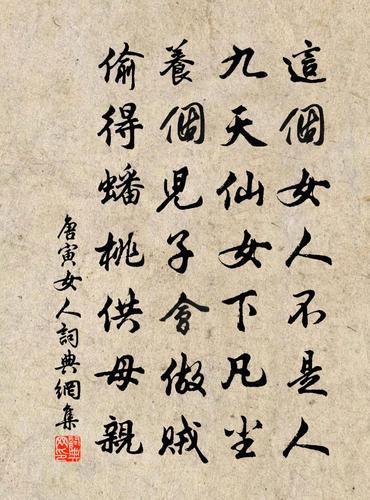 這個女人不是人
九天仙女下凡尘
養個児子會做贼
偷得蟠桃供母親
唐寅女人詞典網集